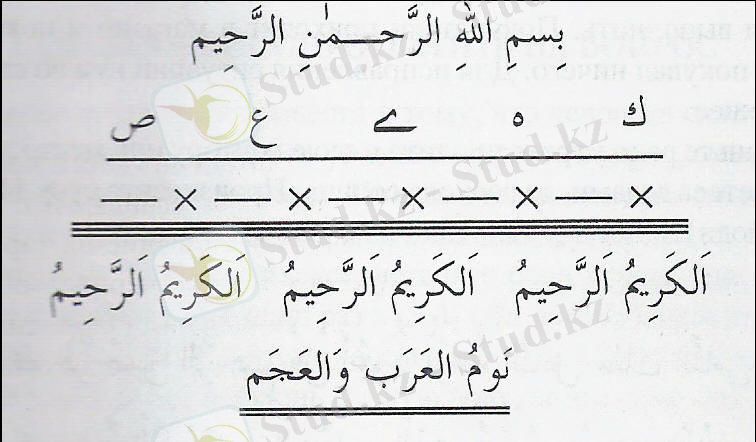 بِسْمِ اللهِ الرَّحْمٰنِ الرَّحِيم
ك ه ے ع ص
× × × × ×
اَلكَرِيمُ اَلرَّحِيمُ اَلكَرِيمُ اَلرَّحِيمُ اَلكَرِيمُ اَلرَّحِيمُ
نَومُ العَرَب وَالعَجَم
Stud.kz
Stud.kz
Stud.kz
Stud.kz
Stud.kz